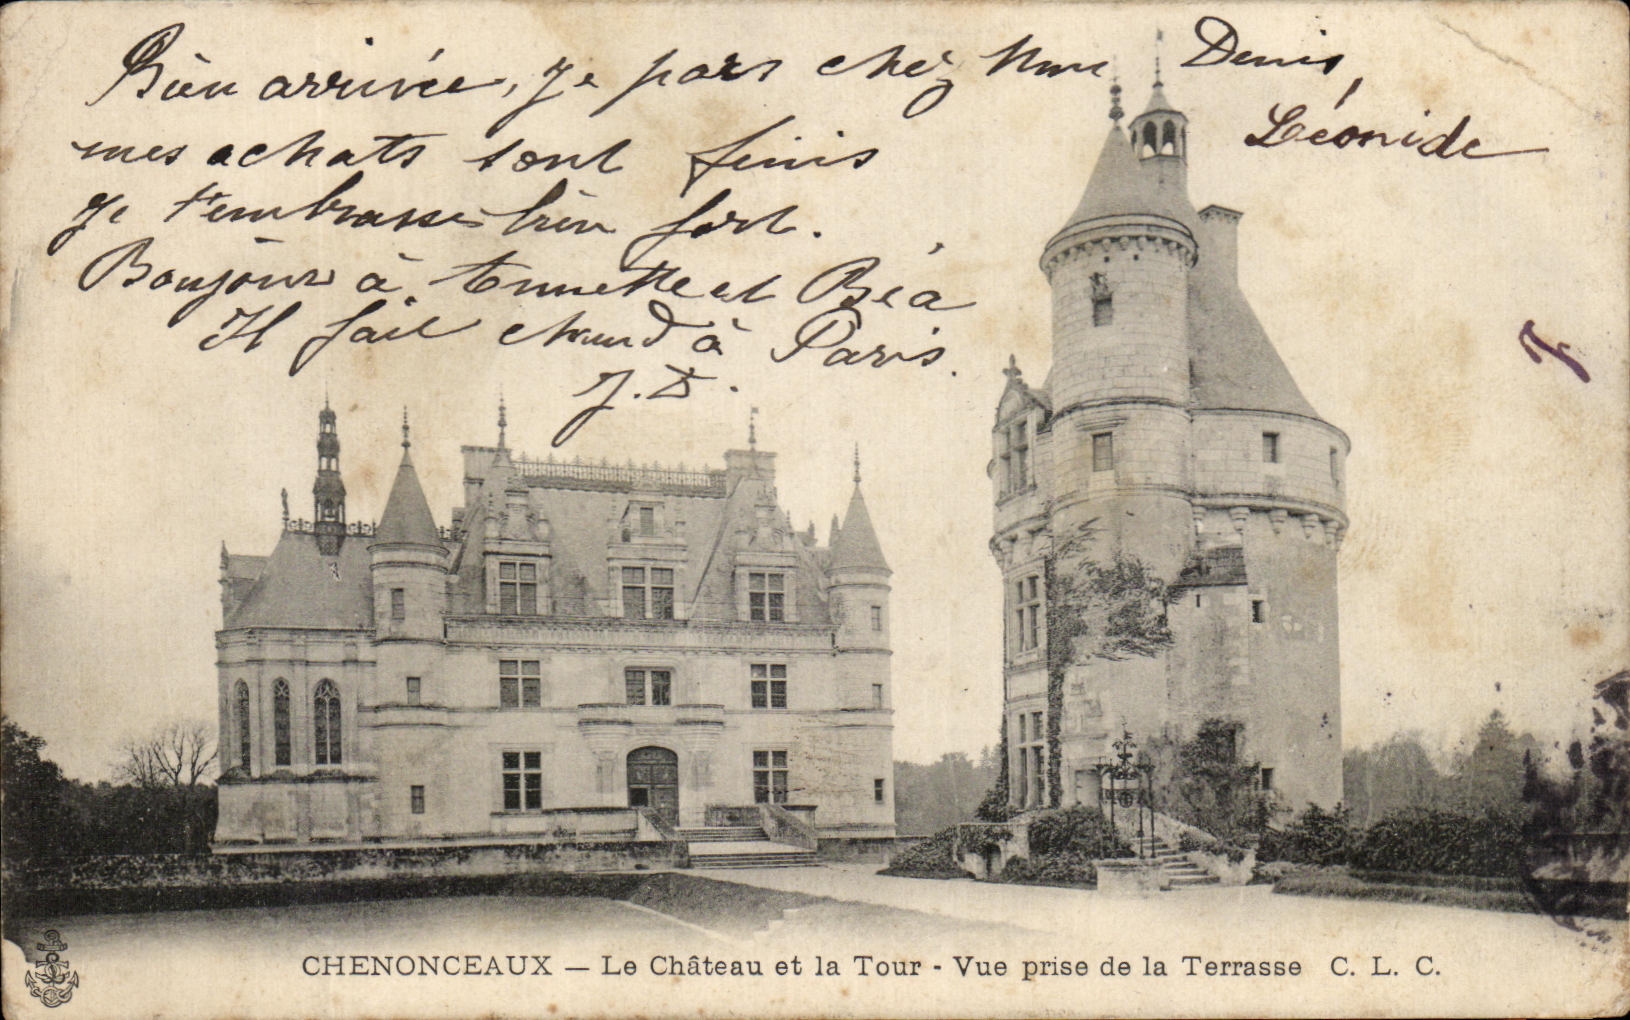 Bien arrivée, je pars chez Mme Denis,
Léonide
mes achats sont finis
je t'embrasse bien fort.
Bonjour à tonnette et Béa
Il fait chaud à Paris.
J. D.
CHENONCEAUX — Le Château et la Tour - Vue prise de la Terrasse C. L. C.